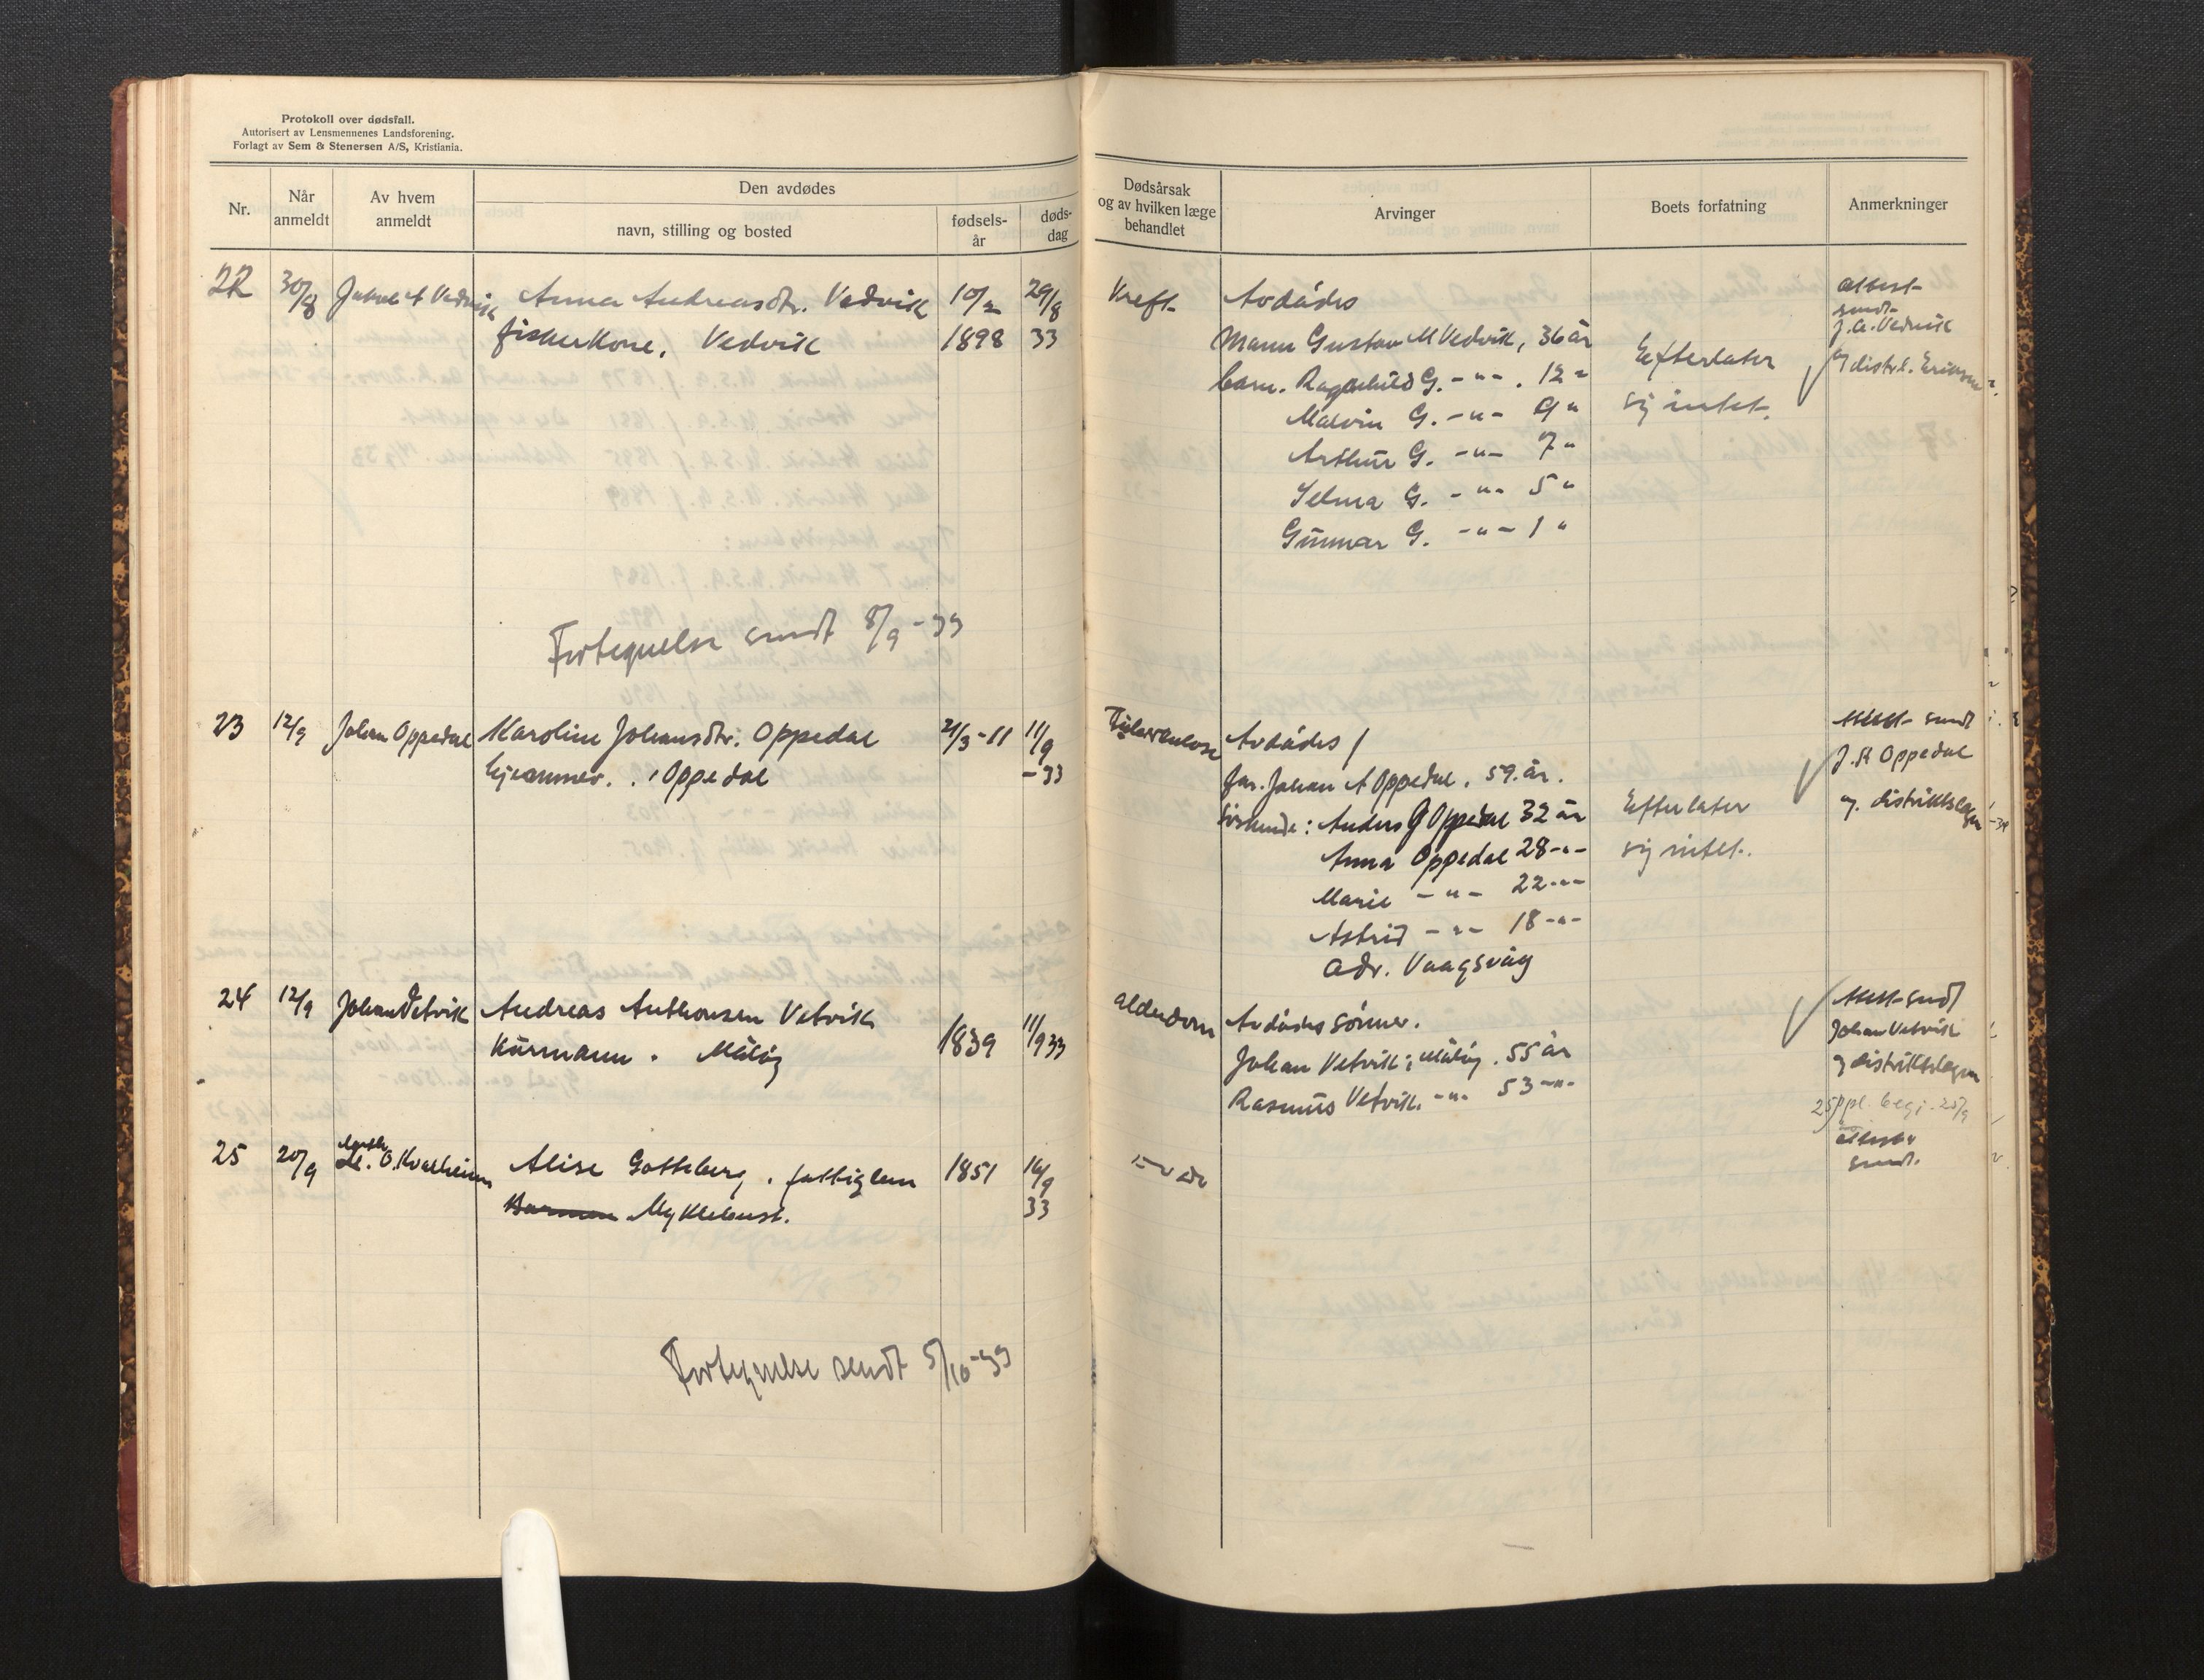 Protokoll over dødsfall.
Autorisert av Lensmennenes Landsforening.
Forlagt av Sem & Stenersen A/S, Kristiania.
Nr.
Når anmeldt
Av hvem anmeldt
Den avdødes
navn, stilling og bosted
fødsels-år
døds-dag
22 30/8 Vedvik Anna Andreasdtr. Vedvik 10/2 29/8
fiskerkone. Vedvik 1898 33
Fortegnelse sendt 8/9-33
23 12/9 Johan Oppedal Karoline Johansdtr. Oppedal 21/3-11 11/9
hjemmev. , Oppedal -33
24 12/9 Johan Vetvik Andreas Anthonsen Vetvik
Kårmann. Måløy 1839 11/9 33
25 20/9 O. Kvalheim Alise Gotteberg, fattiglem 1851 16/9
Myklebust. 33
Fortegnelse sendt 5/10-33
Dødsårsak
og av hvilken læge
behandlet
Arvinger
Boets forfatning
Anmerkninger
Kreft Avdødes
Mann Gustav M Vedvik, 36 år
barn. Ragnhild G. -"- . 12 "
Malvin G. -"- 9 "
Arthur G. -"- 7 "
Selma G. -"- 5 "
Gunnar G. -"- 1 "
Efterlater
sig intet.
attest
sendt
J.A. Vedvik
og distrl. Eriksen
Tuberkulose Avdødes /
far. Johan A Oppedal. 59. år.
Søskende: Anders G Oppedal 32 år
Anna Oppedal 28 -"-
Marie -"- 22 -"-
Astrid -"- 18 -"-
adr. Vaagsvåg
Efterlater
sig intet.
Attest sendt
J. A Oppedal
og distriktslægen
alderdom Avdødes sønner.
Johan Vetvik, Måløy. 55 år
Rasmus Vetvik. -"- 53 -"-
Attest sendt
Johan Vetvik
og distriktslægen
attest
sendt.